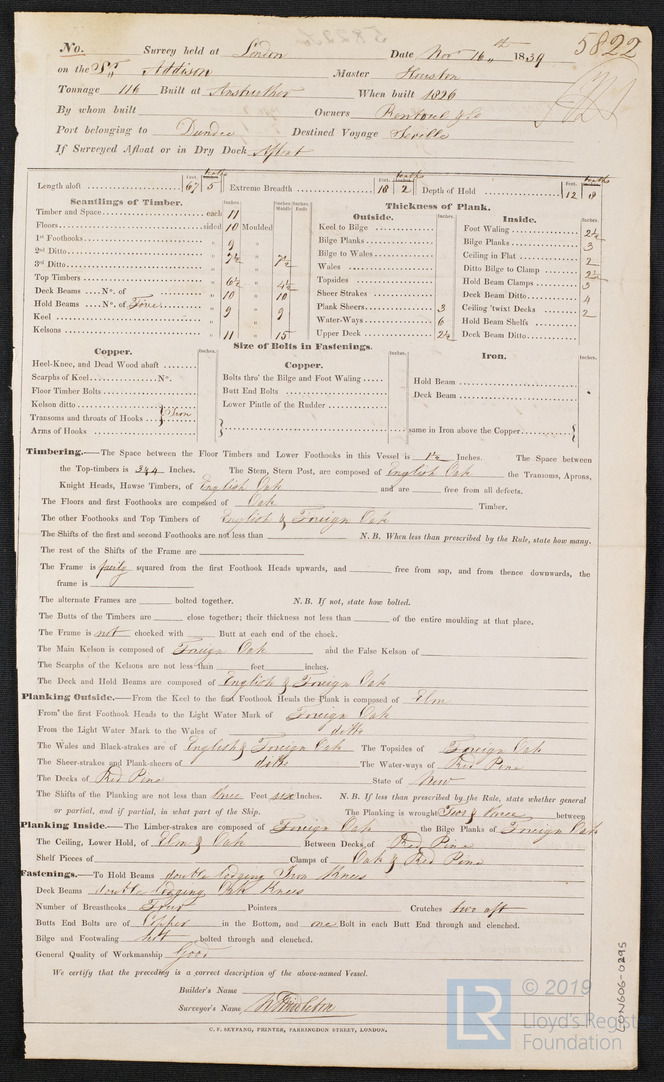 5822
No. Survey held at London Date Nov 16th 1839
on the Sr Addison Master Huston
Tonnage 116 Built at Anstruther When built 1826
By whom built Owners Rentoul & Co
Port belonging to Dundee Destined Voyage Seville
If Surveyed Afloat or in Dry Dock Afloat
Feet. tenths Feet. tenths Feet. tenths
Length aloft 67 5 Extreme Breadth 18 2 Depth of Hold 12 8
Scantlings of Timber.
Inches. Inches Middle Inches Ends
Timber and Space each 11
Floors sided 10 Moulded
1st Foothooks " 9 "
2nd Ditto " 7½ "
3rd Ditto " " 7½
Top Timbers " 6½ " 4½
Deck Beams No. of " 10 " 10
Hold Beams No. of Four " 9 " 9
Keel " "
Kelsons " 11 " 15
Thickness of Plank.
Outside. Inches.
Keel to Bilge
Bilge Planks
Bilge to Wales
Wales
Topsides
Sheer Strakes
Plank Sheers 3
Water-Ways 6
Upper Deck 2½
Inside. Inches.
Foot Waling 2½
Bilge Planks 3
Ceiling in Flat 2
Ditto Bilge to Clamp 2½
Hold Beam Clamps 3
Deck Beam Ditto 4
Ceiling 'twixt Decks 2
Hold Beam Shelfs
Deck Beam Ditto
Size of Bolts in Fastenings.
Copper. Inches.
Heel-Knee, and Dead Wood abaft
Scarphs of Keel No.
Floor Timber Bolts
Kelson ditto
Transoms and throats of Hooks Iron
Arms of Hooks
Copper. Inches.
Bolts thro' the Bilge and Foot Waling
Butt End Bolts
Lower Pintle of the Rudder
Iron. Inches.
Hold Beam
Deck Beam
same in Iron above the Copper
Timbering.—The Space between the Floor Timbers and Lower Foothooks in this Vessel is 1½ Inches. The Space between
the Top-timbers is Inches. The Stem, Stern Post, are composed of English Oak the Transoms, Aprons,
Knight Heads, Hawse Timbers, of English Oak and are free from all defects.
The Floors and first Foothooks are composed of Oak Timber.
The other Foothooks and Top Timbers of English & Foreign Oak
The Shifts of the first and second Foothooks are not less than N.B. When less than prescribed by the Rule, state how many.
The rest of the Shifts of the Frame are
The Frame is partly squared from the first Foothook Heads upwards, and free from sap, and from thence downwards, the
frame is
The alternate Frames are bolted together. N.B. If not, state how bolted.
The Butts of the Timbers are close together; their thickness not less than of the entire moulding at that place.
The Frame is not chocked with Butt at each end of the chock.
The Main Kelson is composed of Foreign Oak and the False Kelson of
The Scarphs of the Kelsons are not less than feet inches.
The Deck and Hold Beams are composed of English & Foreign Oak
Planking Outside.—From the Keel to the first Foothook Heads the Plank is composed of Elm
From the first Foothook Heads to the Light Water Mark of Foreign Oak
From the Light Water Mark to the Wales of ditto
The Wales and Black-strakes are of English & Foreign Oak The Topsides of Foreign Oak
The Sheer-strakes and Plank-sheers of ditto The Water-ways of Red Pine
The Decks of Red Pine State of New
The Shifts of the Planking are not less than three Feet six Inches. N.B. If less than prescribed by the Rule, state whether general
or partial, and if partial, in what part of the Ship. The Planking is wrought Two & three between
Planking Inside.—The Limber-strakes are composed of Foreign Oak the Bilge Planks of Foreign Oak
The Ceiling, Lower Hold, of Elm & Oak Between Decks, of Red Pine
Shelf Pieces of Clamps of Oak & Red Pine
Fastenings.—To Hold Beams double lodging Iron Knees
Deck Beams double lodging Oak Knees
Number of Breasthooks Four Pointers Crutches two aft
Butts End Bolts are of Copper in the Bottom, and one Bolt in each Butt End through and clenched.
Bilge and Footwaling not bolted through and clenched.
General Quality of Workmanship Good
We certify that the preceding is a correct description of the above-named Vessel.
Builder's Name
Surveyor's Name Middleton
C. F. SEYFANG, PRINTER, FARRINGDON STREET, LONDON.
LON606-0295
LR
© 2019
Lloyd's Register
Foundation